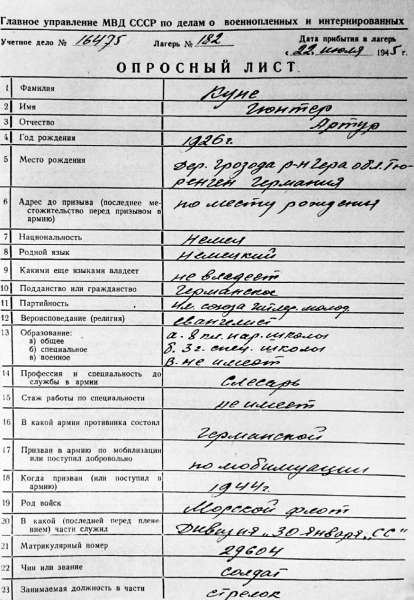 Главное управление МВД СССР по делам о военнопленных и интернированных
Учетное дело № 16475 Лагерь № 182
Дата прибытия в лагерь
с 22 июля 1945 г.
ОПРОСНЫЙ ЛИСТ
1 Фамилия Куне
2 Имя Гюнтер
3 Отчество Артур
4 Год рождения 1926 г.
5 Место рождения Дер. Грозода р-н Гера обл. Тю-
ренген Германия
6 Адрес до призыва (последнее ме-
стожительство перед призывом в
армию) по месту рождения
7 Национальность немец
8 Родной язык немецкий
9 Какими еще языками владеет не владеет
10 Подданство или гражданство Германское
11 Партийность чл. союза гитлер. молод.
12 Вероисповедание (религия) евангелист
13 Образование:
а) общее а. 8 кл. нар. школы
б) специальное б. 3 г. спец. школы
в) военное в. не имеет
14 Профессия и специальность до
службы в армии Слесарь
15 Стаж работы по специальности не имеет
16 В какой армии противника состоял Германской
17 Призван в армию по мобилизации
или поступил добровольно по мобилизации
18 Когда призван (или поступил в
армию) 1944 г.
19 Род войск Морской флот
20 В какой (последней перед плене-
нием) части служил Дивизия „30 января „СС"
21 Матрикулярный номер 29604
22 Чин или звание солдат
23 Занимаемая должность в части стрелок